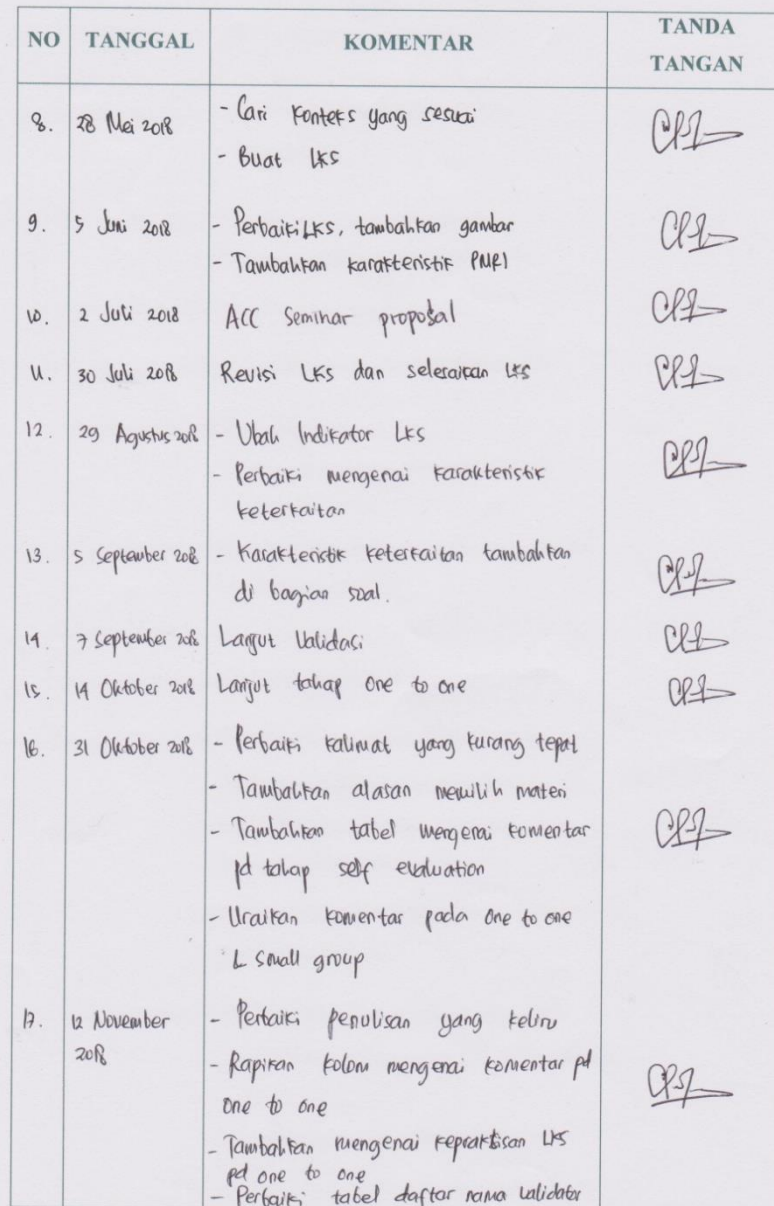 NO TANGGAL KOMENTAR TANDA TANGAN
8. 28 Mei 2018 - Cari konteks yang sesuai
- Buat LKS
9. 5 Juni 2018 - Perbaiki LKS, tambahkan gambar
- Tambahkan karakteristik PMRI
10. 2 Juli 2018 ACC Seminar proposal
11. 30 Juli 2018 Revisi LKS dan selesaikan LKS
12. 29 Agustus 2018 - Ubah Indikator LKS
- Perbaiki mengenai karakteristik
keterkaitan
13. 5 September 2018 - Karakteristik keterkaitan tambahkan
di bagian soal.
14. 7 September 2018 Lanjut Validasi
15. 14 Oktober 2018 Lanjut tahap one to one
16. 31 Oktober 2018 - Perbaiki kalimat yang kurang tepat
- Tambahkan alasan memilih materi
- Tambahkan tabel mengenai komentar
pd tahap self evaluation
- Uraikan komentar pada one to one
& small group
17. 12 November 2018 - Perbaiki penulisan yang keliru
- Rapikan kolom mengenai komentar pd
one to one
- Tambahkan mengenai kepraktisan LKS
pd one to one
- Perbaiki tabel daftar nama validator